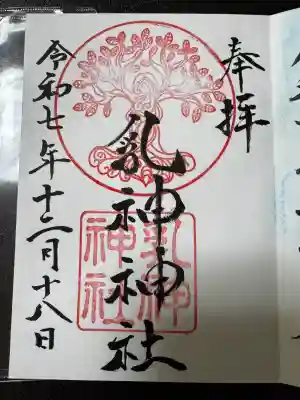 奉拝
乳神神社
乳神
神社
令和七年十二月十八日